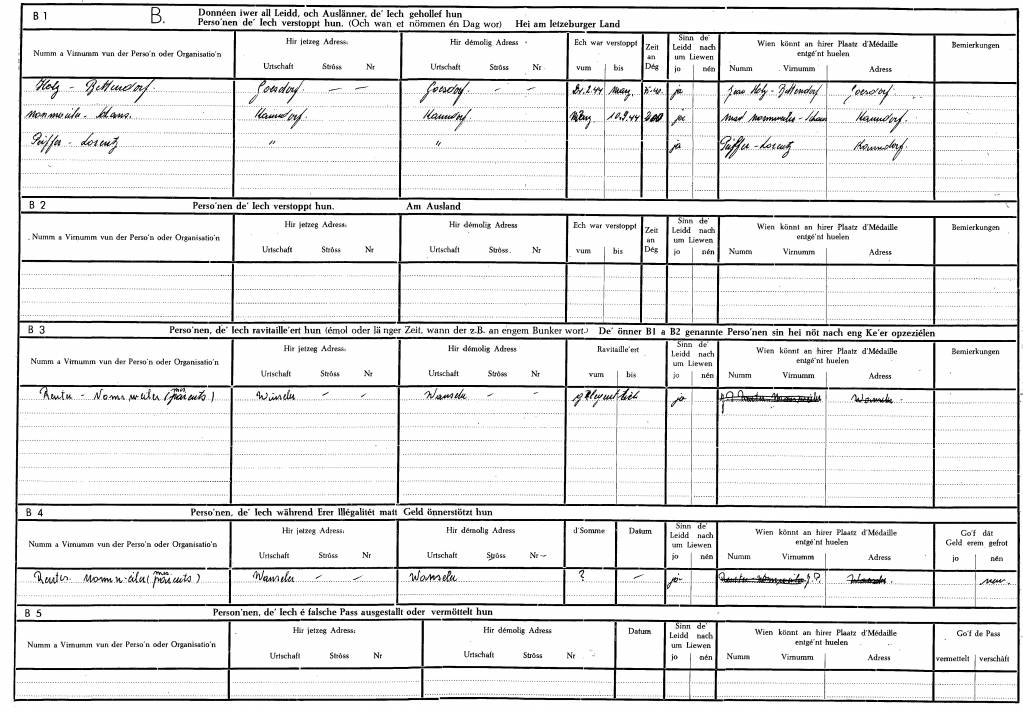 B 1 B. Donnéen iwer all Leidd, och Auslänner, de' Iech gehollef hun
Perso'nen de' Iech verstoppt hun. (Och wan et nömmen én Dag wor) Hei am letzeburger Land
Numm a Virnumm vun der Perso'n oder Organisatio'n Hir jetzeg Adress: Hir démolig Adress Ech war verstoppt Zeit an Dég Sinn de' Leidd nach um Liewen Wien könnt an hirer Plaatz d'Médaille entgé'nt huelen Bemierkungen
Urtschaft Ströss Nr Urtschaft Ströss Nr vum bis jo nén Numm Virnumm Adress
Holz - Bettendorf. Goesdorf. — — Goesdorf. - - 21.2.44 ja Holz - Bettendorf Goesdorf.
Kaundorf. Kaundorf. 10.9.44 ja Kaundorf.
Peiffer - Lorentz " " ja Peiffer - Lorentz Kaundorf.
B 2 Perso'nen de' Iech verstoppt hun. Am Ausland
Numm a Virnumm vun der Perso'n oder Organisatio'n Hir jetzeg Adress: Hir démolig Adress Ech war verstoppt Zeit an Dég Sinn de' Leidd nach um Liewen Wien könnt an hirer Plaatz d'Médaille entgé'nt huelen Bemierkungen
Urtschaft Ströss Nr Urtschaft Ströss. Nr vum bis jo nén Numm Virnumm Adress
B 3 Perso'nen, de' Iech ravitaille'ert hun (émol oder länger Zeit, wann der z.B. an engem Bunker wort.) De' önner B1 a B2 genannte Perso'nen sin hei nöt nach eng Ke'er opzeziélen
Numm a Virnumm vun der Perso'n oder Organisatio'n Hir jetzeg Adress: Hir démolig Adress Ravitaille'ert Sinn de' Leidd nach um Liewen Wien könnt an hirer Plaatz d'Médaille entgé'nt huelen Bemierkungen
Urtschaft Ströss Nr Urtschaft Ströss Nr vum bis jo nén Numm Virnumm Adress
Reuter - Nommweiler (mes parents) Winseler - - Wanseler - - gelegentlich jo Wanseler -
B 4 Perso'nen, de' Iech während Erer Illégalitét matt Geld önnerstötzt hun
Numm a Virnumm vun der Perso'n oder Organisatio'n Hir jetzeg Adress: Hir démolig Adress d'Somme Datum Sinn de' Leidd nach um Liewen Wien könnt an hirer Plaatz d'Médaille entgé'nt huelen Go'f dât Geld erem gefrot
Urtschaft Ströss Nr Urtschaft Ströss Nr jo nén Numm Virnumm Adress jo nén
Reuter (mes parents) Wanseler - - Wanseler ? - jo
B 5 Person'nen, de' Iech é falsche Pass ausgestallt oder vermöttelt hun
Numm a Virnumm vun der Perso'n oder Organisatio'n Hir jetzeg Adress: Hir démolig Adress Datum Sinn de' Leidd nach um Liewen Wien könnt an hirer Plaatz d'Médaille entgé'nt huelen Go'f de Pass
Urtschaft Ströss Nr Urtschaft Ströss Nr jo nén Numm Virnumm Adress vermettelt verschâft